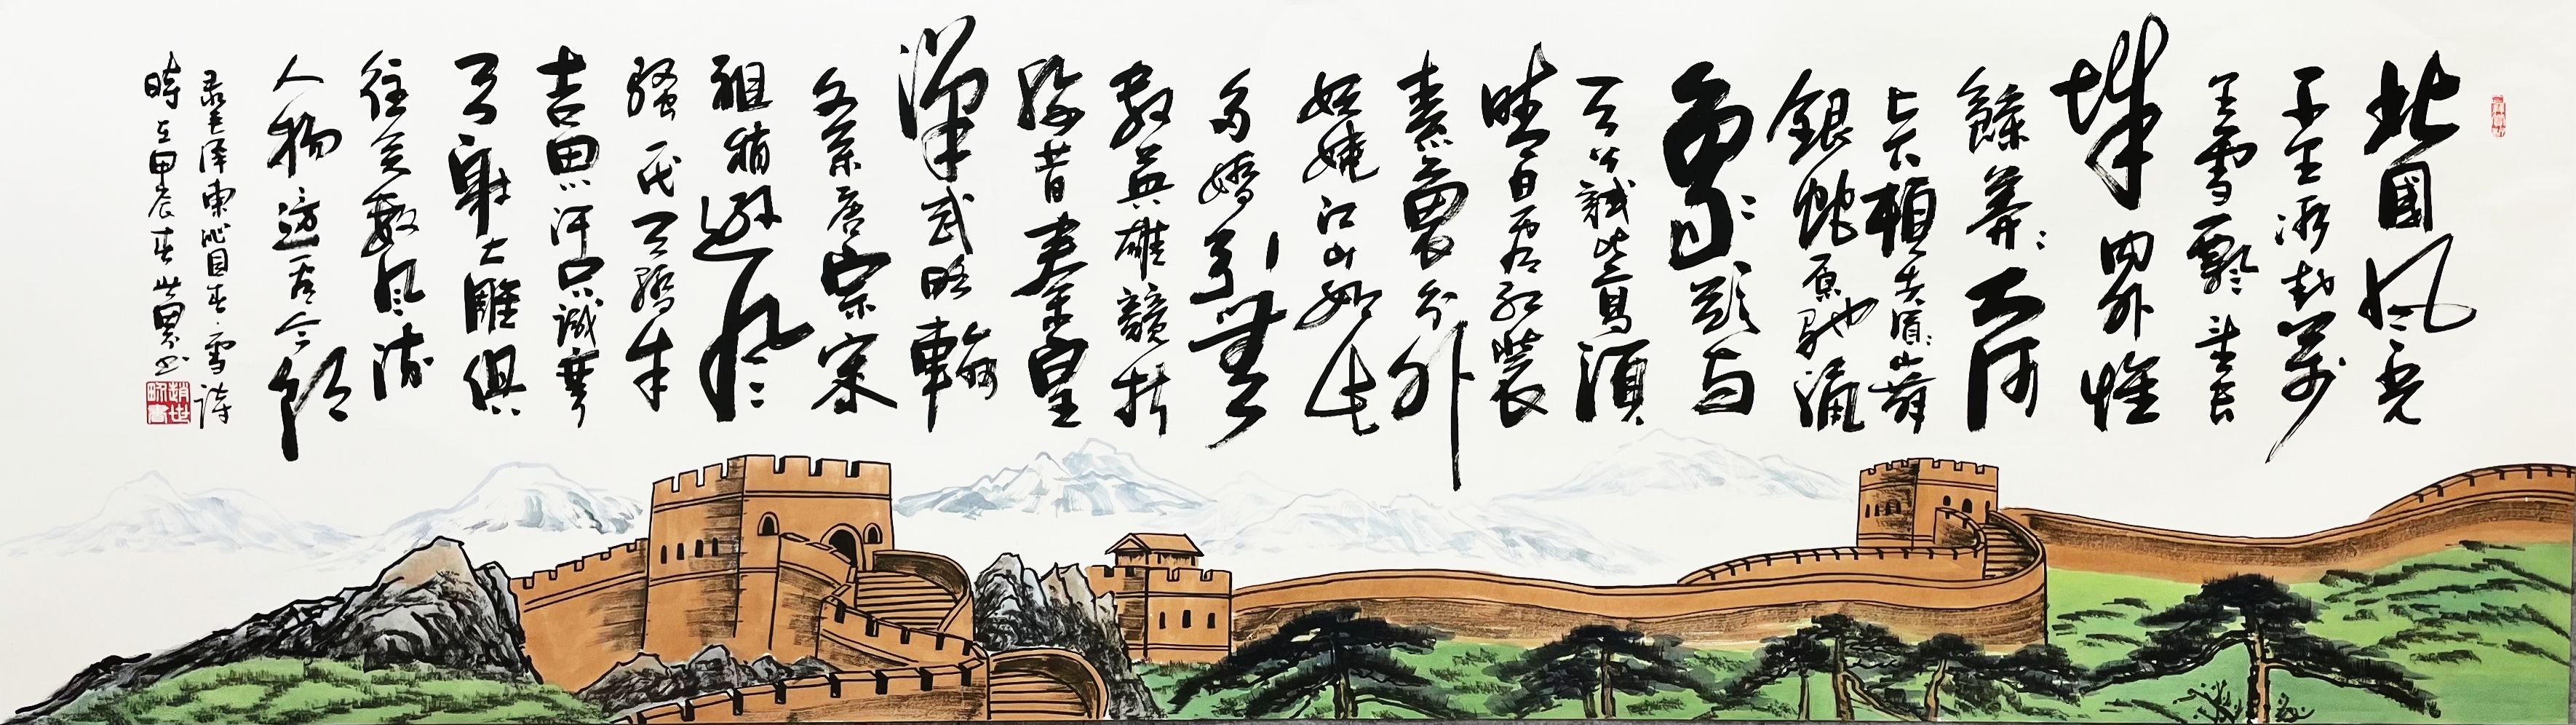 北國風光
千里冰封萬
里雪飄望長
城內外惟
餘莽莽大河
上下頓失滔滔山舞
銀蛇原馳蠟
象欲與
天公試比高須
晴日看紅裝
素裹分外
妖嬈江山如此
多嬌引無
數英雄競折
腰惜秦皇
漢武略輸
文采唐宗宋
祖稍遜風
騷一代天驕成
吉思汗只識彎
弓射大雕俱
往矣數風流
人物還看今朝
錄毛澤東沁園春·雪詩
時在甲辰春世